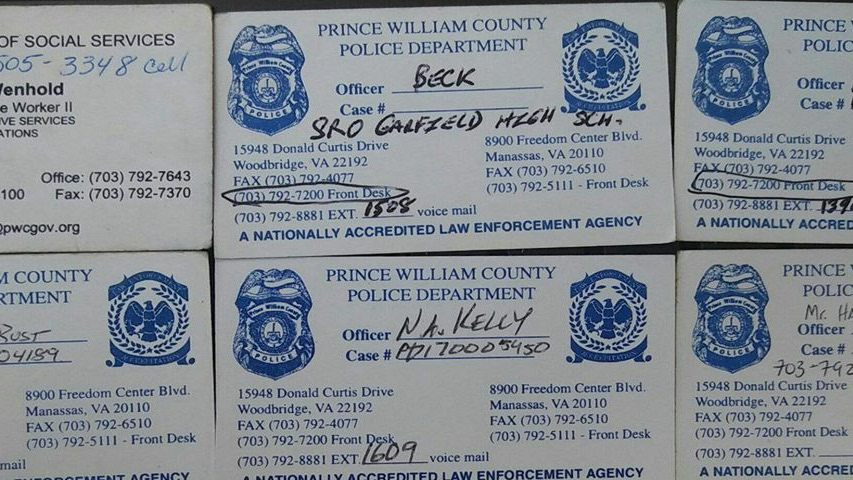 OF SOCIAL SERVICES
505-3348 cell
Wenhold
e Worker II
IVE SERVICES
ATIONS
Office: (703) 792-7643
100 Fax: (703) 792-7370
@pwcgov.org
PRINCE WILLIAM COUNTY
POLICE DEPARTMENT
Officer BECK
Case #
SRO GARFIELD HIGH SCH.
15948 Donald Curtis Drive
Woodbridge, VA 22192
FAX (703) 792-4077
(703) 792-7200 Front Desk
(703) 792-8881 EXT. 1508 voice mail
8900 Freedom Center Blvd.
Manassas, VA 20110
FAX (703) 792-6510
(703) 792-5111 - Front Desk
A NATIONALLY ACCREDITED LAW ENFORCEMENT AGENCY
Prince William County
POLICE
PRINCE W
POLIC
Officer
Case #
15948 Donald Curtis Drive
Woodbridge, VA 22192
FAX (703) 792-4077
(703) 792-7200 Front Desk
(703) 792-8881 EXT.
A NATIONALLY ACCREDITED
POLICE
M COUNTY
RTMENT
04189
8900 Freedom Center Blvd.
Manassas, VA 20110
FAX (703) 792-6510
(703) 792-5111 - Front Desk
mail
ENFORCEMENT AGENCY
PRINCE WILLIAM COUNTY
POLICE DEPARTMENT
Officer N.A. KELLY
Case # PD170005450
15948 Donald Curtis Drive
Woodbridge, VA 22192
FAX (703) 792-4077
(703) 792-7200 Front Desk
(703) 792-8881 EXT. 1609 voice mail
8900 Freedom Center Blvd.
Manassas, VA 20110
FAX (703) 792-6510
(703) 792-5111 - Front Desk
A NATIONALLY ACCREDITED LAW ENFORCEMENT AGENCY
Prince William County
POLICE
PRINCE W
POLIC
Mr. HA
Officer
Case #
703-792
15948 Donald Curtis Drive
Woodbridge, VA 22192
FAX (703) 792-4077
(703) 792-7200 Front Desk
(703) 792-8881 EXT.
A NATIONALLY ACCREDITED
Prince William County
POLICE